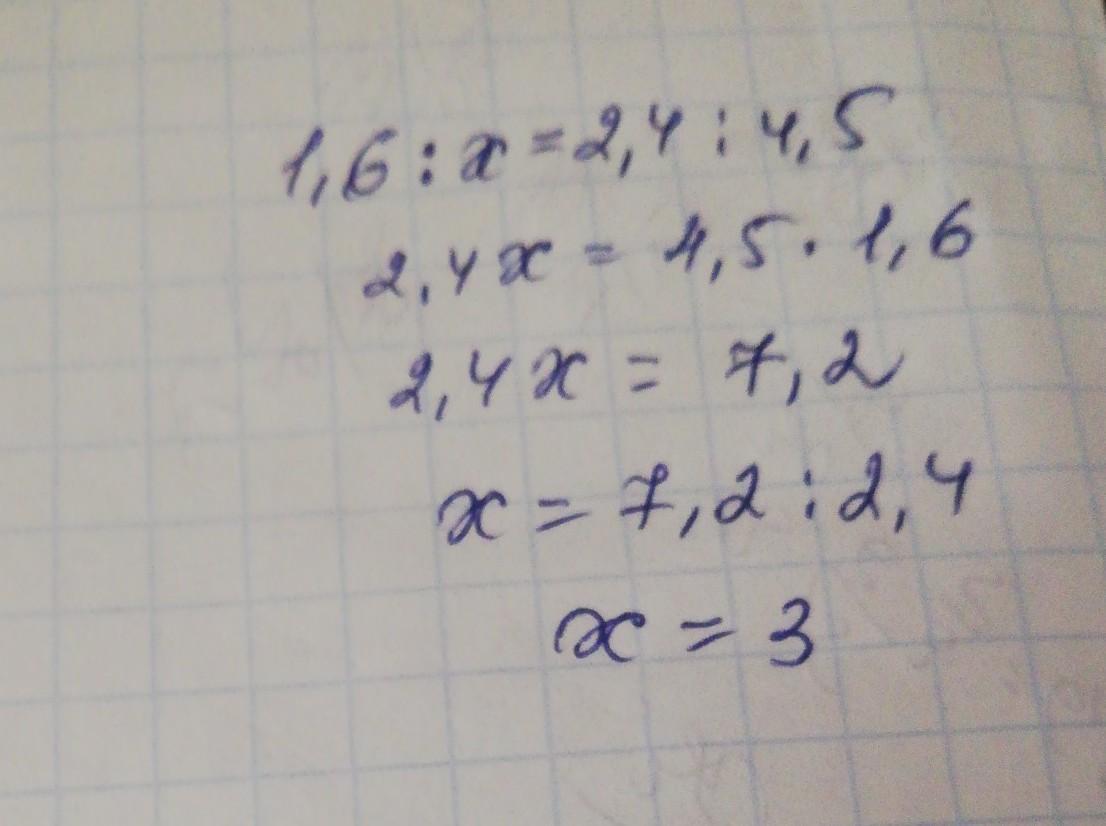 1,6 : x = 2,4 : 4,5
2,4x = 4,5 · 1,6
2,4x = 7,2
x = 7,2 : 2,4
x = 3